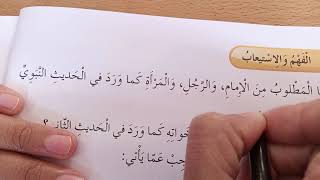 الْفَهْمُ وَالِاسْتِيعَابُ
الْمَطْلُوبُ مِنَ الْإِمَامِ، وَالرَّجُلِ، وَالْمَرْأَةِ كَمَا وَرَدَ فِي الْحَدِيثِ النَّبَوِيِّ
كَمَا وَرَدَ فِي الْحَدِيثِ الثَّانِي؟
عَمَّا يَأْتِي: